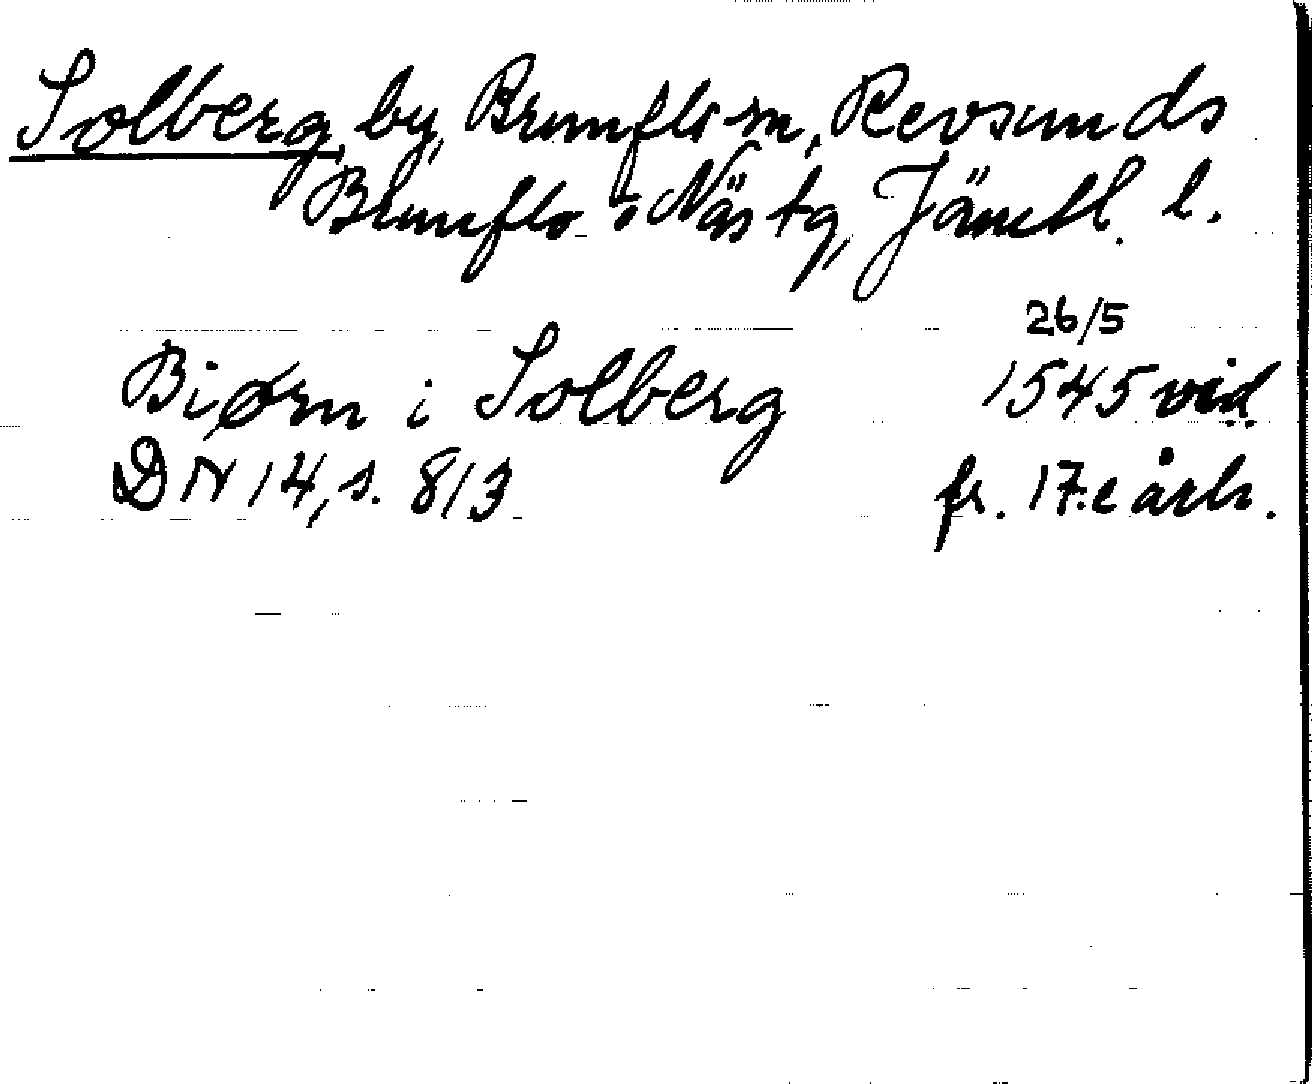 Solberg, by, Brunflo sn, Revsunds
Brunflo o Näs tg, Jämtl. l.
26/5
Biørn i Solberg 1545 vid.
DN 14, s. 813 fr. 17:e årh.